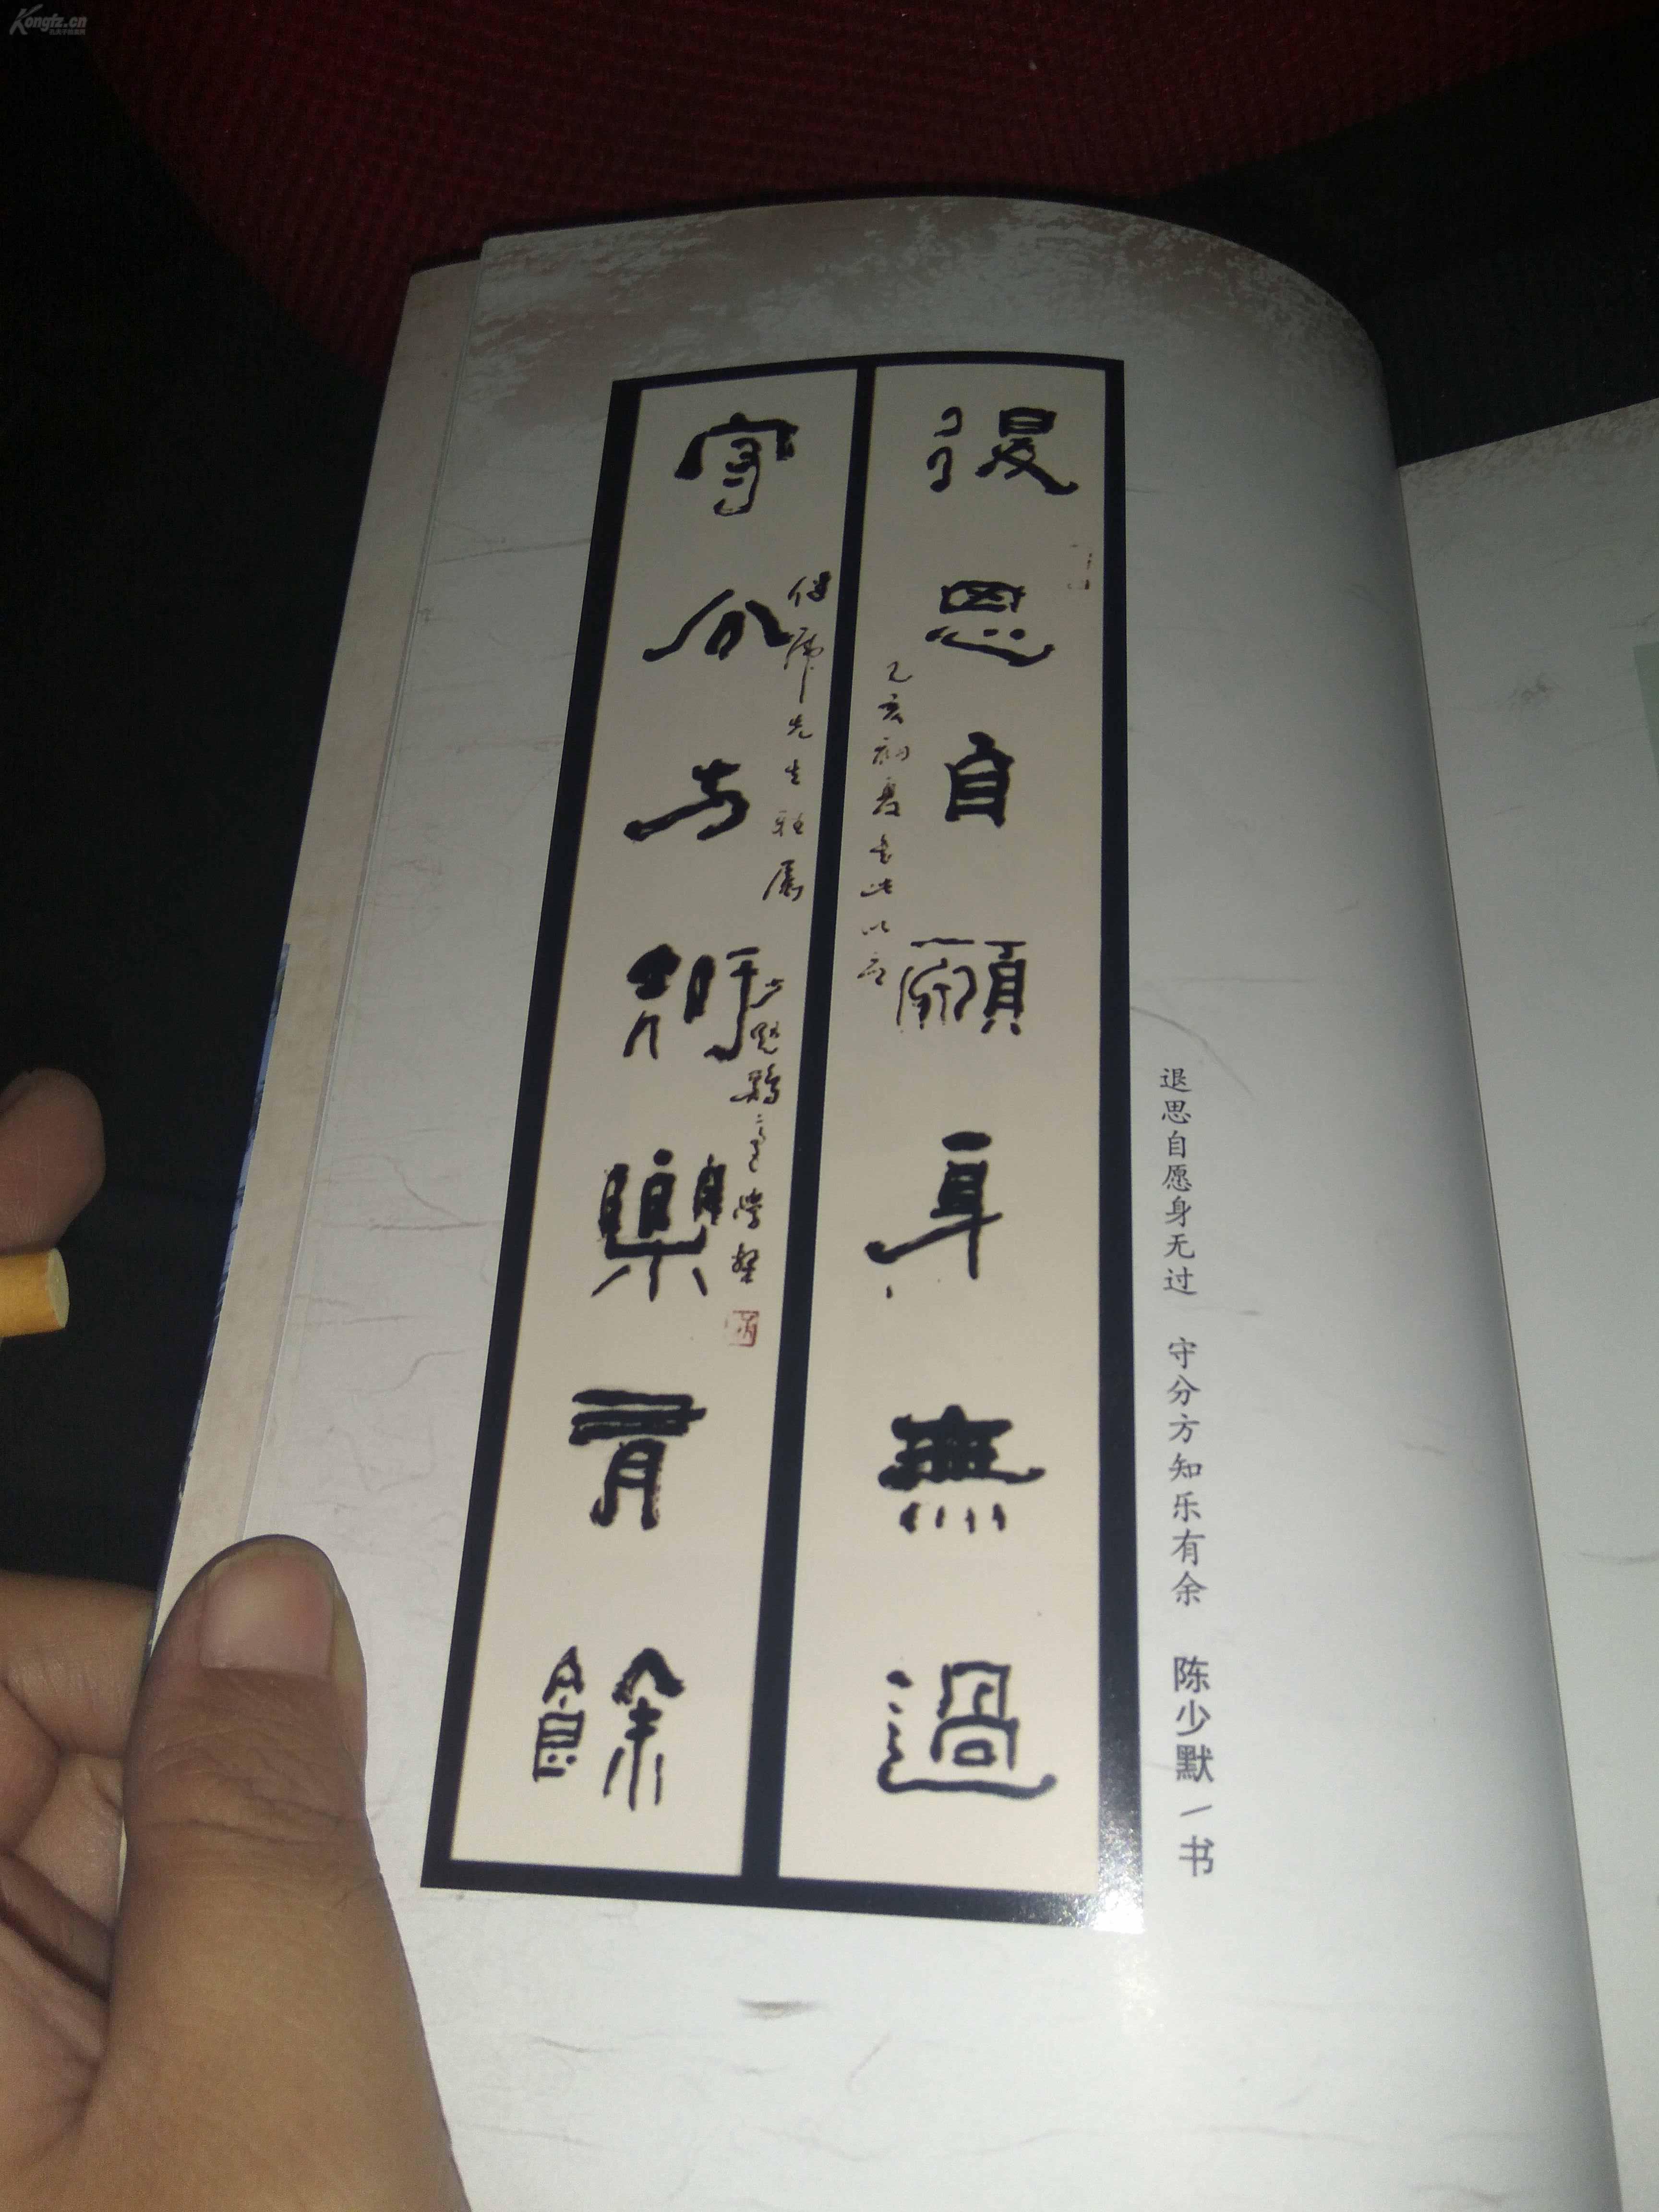 Kongfz.cn
退思自愿身无过 守分方知乐有余 陈少默/书
𢓴思自願身無過
乙亥初夏書此以應
守分方知樂有餘
先生雅屬